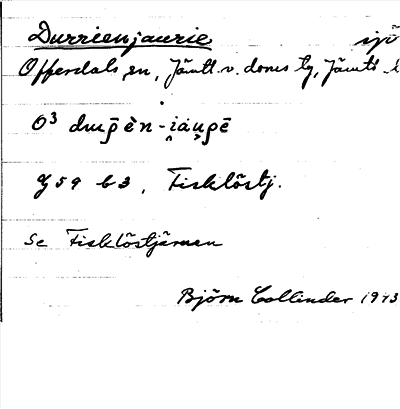 Durrienjaurie sjö
Offerdals sn, Jämtl. v. doms tg, Jämtl. l
O³ durr̄ēn-i̯au̯rē
Y59 b3, Fisklöstj.
Se Fisklöstjärnen
Björn Collinder 1943